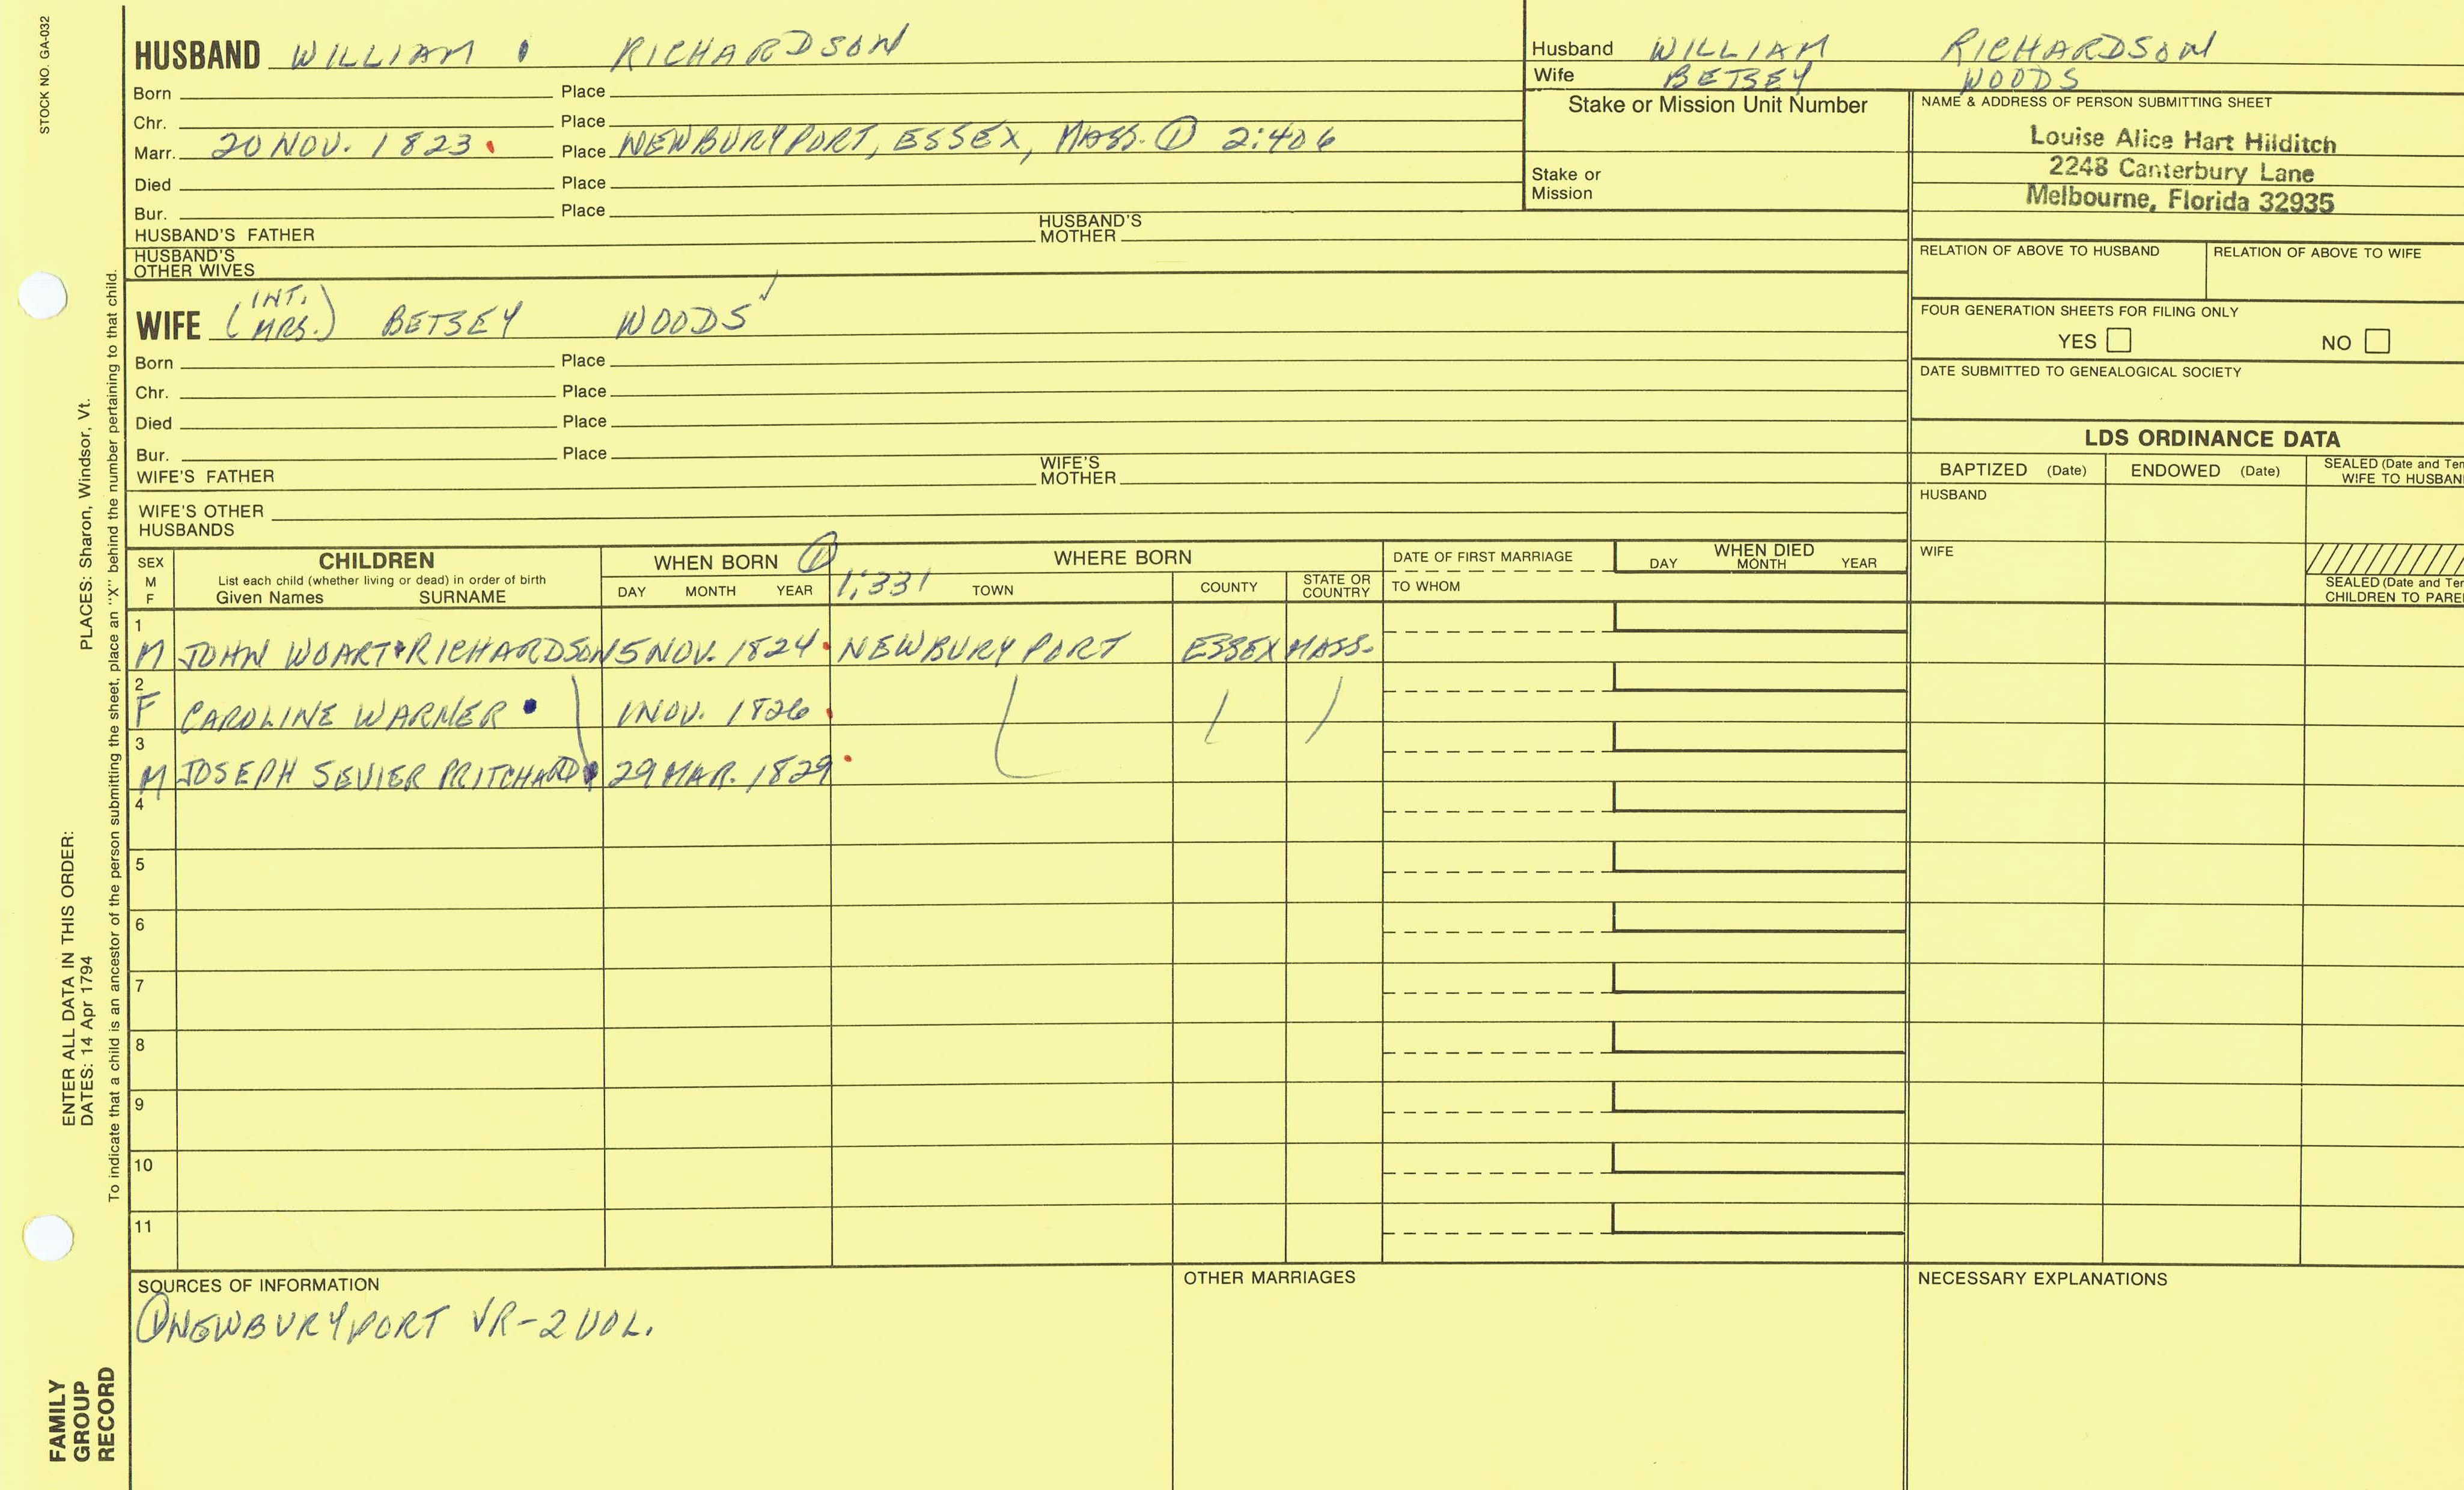 STOCK NO. GA-032
HUSBAND WILLIAM RICHARDSON
Born Place
Chr. Place
Marr. 20 NOV. 1823. Place NEWBURYPORT, ESSEX, MASS. ① 2:406
Died Place
Bur. Place
HUSBAND'S FATHER HUSBAND'S MOTHER
HUSBAND'S
OTHER WIVES
WIFE (INT. MRS.) BETSEY WOODS
Born Place
Chr. Place
Died Place
Bur. Place
WIFE'S FATHER WIFE'S MOTHER
WIFE'S OTHER
HUSBANDS
Husband WILLIAM RICHARDSON
Wife BETSEY WOODS
Stake or Mission Unit Number
Stake or
Mission
NAME & ADDRESS OF PERSON SUBMITTING SHEET
Louise Alice Hart Hilditch
2248 Canterbury Lane
Melbourne, Florida 32935
RELATION OF ABOVE TO HUSBAND RELATION OF ABOVE TO WIFE
FOUR GENERATION SHEETS FOR FILING ONLY
YES NO
DATE SUBMITTED TO GENEALOGICAL SOCIETY
LDS ORDINANCE DATA
BAPTIZED (Date) ENDOWED (Date) SEALED (Date and Tem
WIFE TO HUSBAN
HUSBAND
WIFE
SEALED (Date and Tem
CHILDREN TO PARE
SEX
M
F
CHILDREN
List each child (whether living or dead) in order of birth
Given Names SURNAME
WHEN BORN ①
DAY MONTH YEAR
1:331
WHERE BORN
TOWN COUNTY STATE OR COUNTRY
DATE OF FIRST MARRIAGE
TO WHOM
WHEN DIED
DAY MONTH YEAR
1
M JOHN WOART RICHARDSON 5 NOV. 1824. NEWBURYPORT ESSEX MASS.
2
F CAROLINE WARNER 1 NOV. 1826.
3
M JOSEPH SEVIER PRITCHARD 29 MAR. 1829.
4
5
6
7
8
9
10
11
SOURCES OF INFORMATION
① NEWBURYPORT VR-2 VOL.
OTHER MARRIAGES
NECESSARY EXPLANATIONS
ENTER ALL DATA IN THIS ORDER:
DATES: 14 Apr 1794 PLACES: Sharon, Windsor, Vt.
To indicate that a child is an ancestor of the person submitting the sheet, place an "X" behind the number pertaining to that child.
FAMILY
GROUP
RECORD